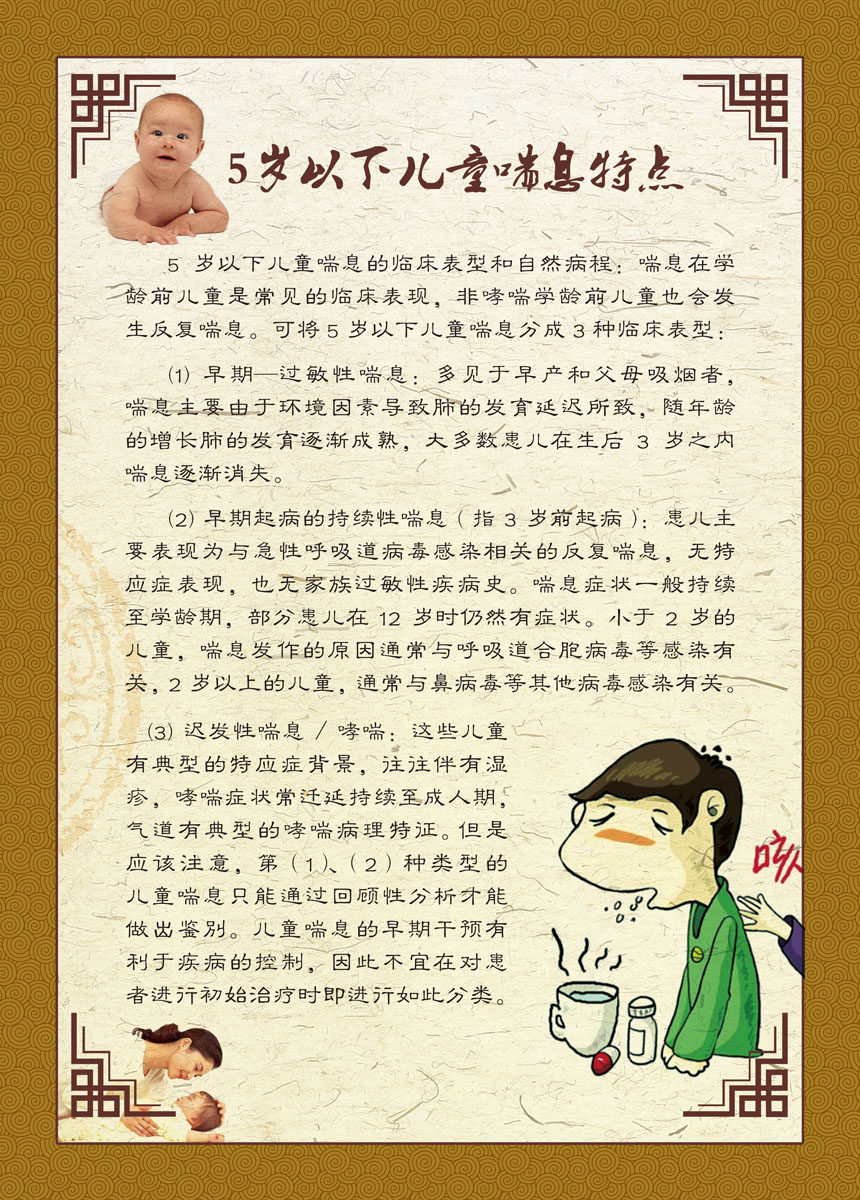 5岁以下儿童喘息特点
5 岁以下儿童喘息的临床表型和自然病程：喘息在学
龄前儿童是常见的临床表现，非哮喘学龄前儿童也会发
生反复喘息。可将 5 岁以下儿童喘息分成 3 种临床表型：
(1) 早期—过敏性喘息：多见于早产和父母吸烟者，
喘息主要由于环境因素导致肺的发育延迟所致，随年龄
的增长肺的发育逐渐成熟，大多数患儿在生后 3 岁之内
喘息逐渐消失。
(2) 早期起病的持续性喘息（指 3 岁前起病）：患儿主
要表现为与急性呼吸道病毒感染相关的反复喘息，无特
应症表现，也无家族过敏性疾病史。喘息症状一般持续
至学龄期，部分患儿在 12 岁时仍然有症状。小于 2 岁的
儿童，喘息发作的原因通常与呼吸道合胞病毒等感染有
关，2 岁以上的儿童，通常与鼻病毒等其他病毒感染有关。
(3) 迟发性喘息 / 哮喘：这些儿童
有典型的特应症背景，往往伴有湿
疹，哮喘症状常迁延持续至成人期，
气道有典型的哮喘病理特征。但是
应该注意，第（1）、（2）种类型的
儿童喘息只能通过回顾性分析才能
做出鉴别。儿童喘息的早期干预有
利于疾病的控制，因此不宜在对患
者进行初始治疗时即进行如此分类。
咳